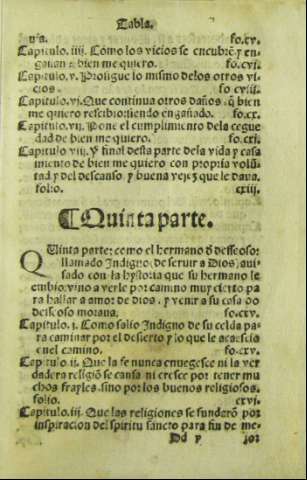 Tabla.
ua. fo.cv.
Capitulo. iiij. Como los vicios se encubrẽ y en
gañan a bien me quiero. fo.cvi.
Capitulo. v. Prosigue lo mismo delos otros vi
cios. fo cviii.
Capitulo. vi. Que continua otros daños q̃ bien
me quiero rescibio siendo engañado. fo.cx.
Capitulo. vij. Pone el cumplimiento dela cegue
dad de bien me quiero. fo.cxi.
Capitulo. viij. y final desta parte dela vida y casa
miento de bien me quiero con propria volũ
tad y del descanso y buena vejez que le daua.
folio. cxiii.
Quinta parte.
QUinta parte: como el hermano d̃ desseoso:
llamado Indigno, de seruir a Dios, aui-
sado con la hystoria que su hermano le
embio, vino a verle por camino muy cierto pa
ra hallar a amor de Dios, y venir a su casa do
desseoso moraua. fo.cxv.
Capitulo. j. Como salio Indigno de su celda pa-
ra caminar por el desierto y lo que le acaescia
en el camino. fo.cxv.
Capitulo. ij. Que la fe nunca enuegesce ni la ver
dadera religiõ se cansa ni cresce por tener mu
chos frayles, sino por los buenos religiosos.
folio. cxvi.
Capitulo. iij. Que las religiones se fundarõ por
inspiracion del spiritu sancto para fin de me-
Dd v jor